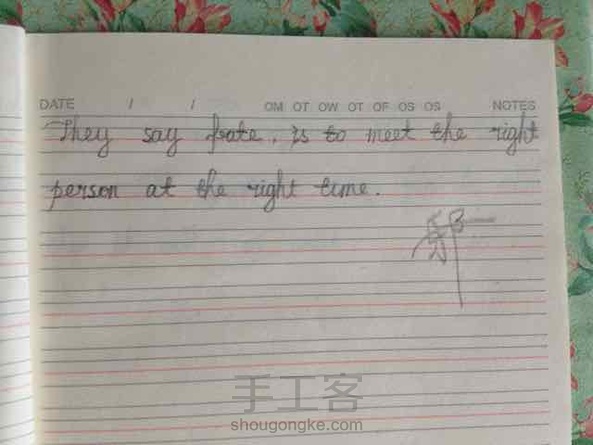 DATE / / OM OT OW OT OF OS OS NOTES
They say fate, is to meet the right
person at the right time.
手工客
shougongke.com